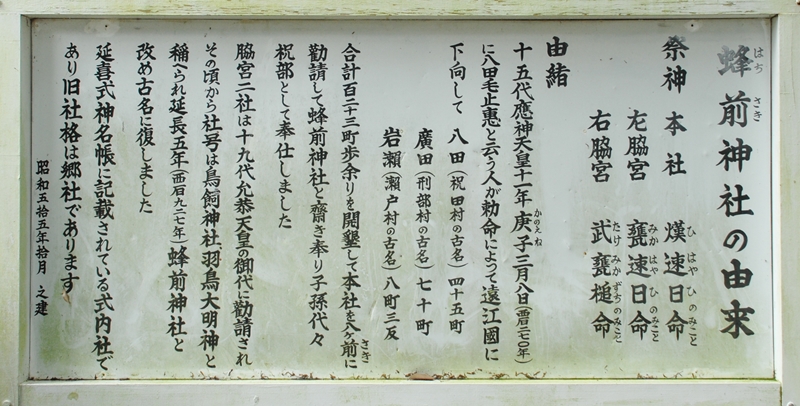 蜂前神社の由来
はぢさき
祭神 本社 熯速日命
ひはやひのみこと
左脇宮 甕速日命
みかはやひのみこと
右脇宮 武甕槌命
たけみかずちのみこと
由緒
十五代應神天皇十一年庚子三月八日(西匠二七〇年)
かのえね
に八田毛止惠と云う人が勅命によって遠江國に
下向して 八田(祝田村の古名)四十五町
廣田(刑部村の古名)七十町
岩瀬(瀬戸村の古名)八町三反
合計百二十三町歩余りを開墾して本社を八ヶ前に
さき
勸請して蜂前神社と齋き奉り子孫代々
祝部として奉仕しました
脇宮二社は十九代允恭天皇の御代に勸請され
その頃から社号は鳥飼神社、羽鳥大明神と
稱へられ延長五年(西匠九二七年)蜂前神社と
改め古名に復しました
延喜式神名帳に記載されている式内社で
あり旧社格は郷社であります
昭和五拾五年拾月 之建